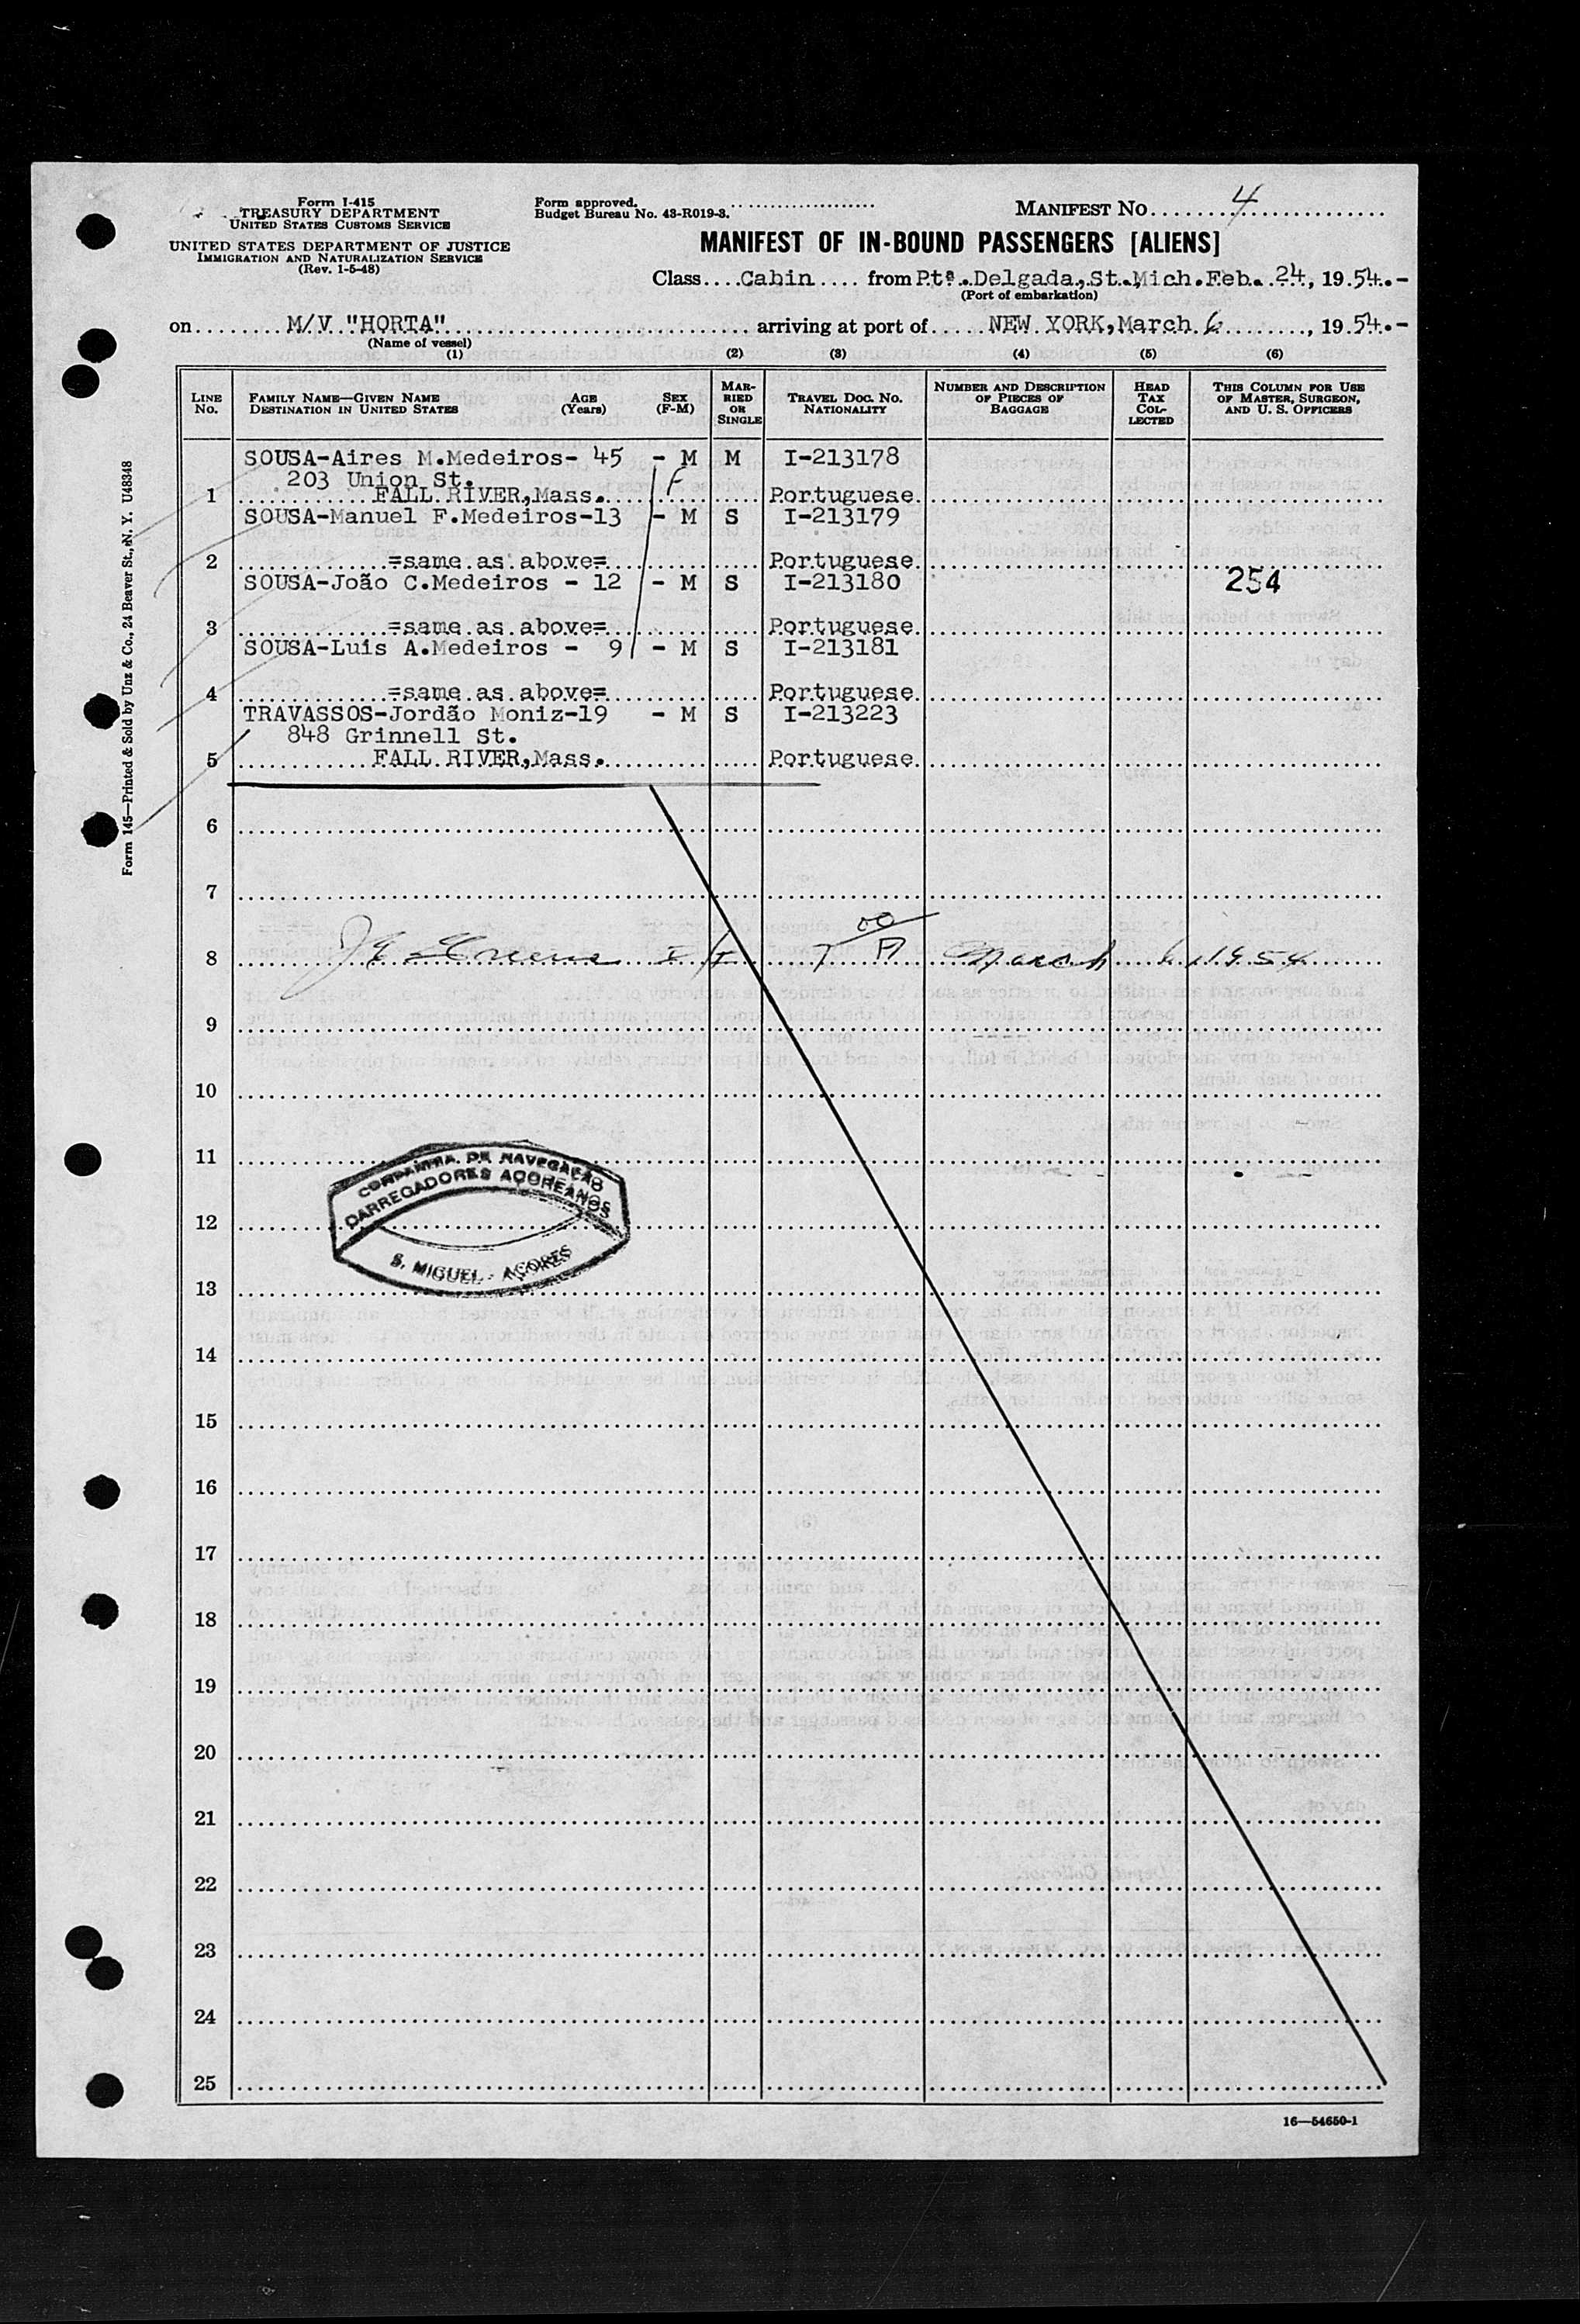 Form I-415
TREASURY DEPARTMENT
UNITED STATES CUSTOMS SERVICE
UNITED STATES DEPARTMENT OF JUSTICE
IMMIGRATION AND NATURALIZATION SERVICE
(Rev. 1-5-48)
Form approved.
Budget Bureau No. 43-R019-3.
MANIFEST NO. 4
MANIFEST OF IN-BOUND PASSENGERS [ALIENS]
Class Cabin from Ptª.Delgada,St.Mich.Feb. 24, 19 54.-
(Port of embarkation)
on M/V "HORTA" arriving at port of NEW YORK,March 6, 19 54.-
(Name of vessel)
(1) (2) (3) (4) (5) (6)
LINE No. FAMILY NAME—GIVEN NAME DESTINATION IN UNITED STATES AGE (Years) SEX (F-M) MARRIED OR SINGLE TRAVEL DOC. NO. NATIONALITY NUMBER AND DESCRIPTION OF PIECES OF BAGGAGE HEAD TAX COLLECTED THIS COLUMN FOR USE OF MASTER, SURGEON, AND U. S. OFFICERS
SOUSA-Aires M.Medeiros- 45 - M M I-213178
203 Union St. F
1 FALL RIVER,Mass. Portuguese
SOUSA-Manuel F.Medeiros-13 - M S I-213179
2 =same as above= Portuguese
SOUSA-João C.Medeiros - 12 - M S I-213180 254
3 =same as above= Portuguese
SOUSA-Luis A.Medeiros - 9 - M S I-213181
4 =same as above= Portuguese
TRAVASSOS-Jordão Moniz-19 - M S I-213223
848 Grinnell St.
5 FALL RIVER,Mass. Portuguese
6
7
8 March 6, 1954
9
10
11
12
13
14
15
16
17
18
19
20
21
22
23
24
25
COMPANHIA DE NAVEGAÇÃO
CARREGADORES AÇOREANOS
S. MIGUEL - AÇORES
Form 145—Printed & Sold by Unz & Co., 24 Beaver St., N. Y. U48348
16—54650-1